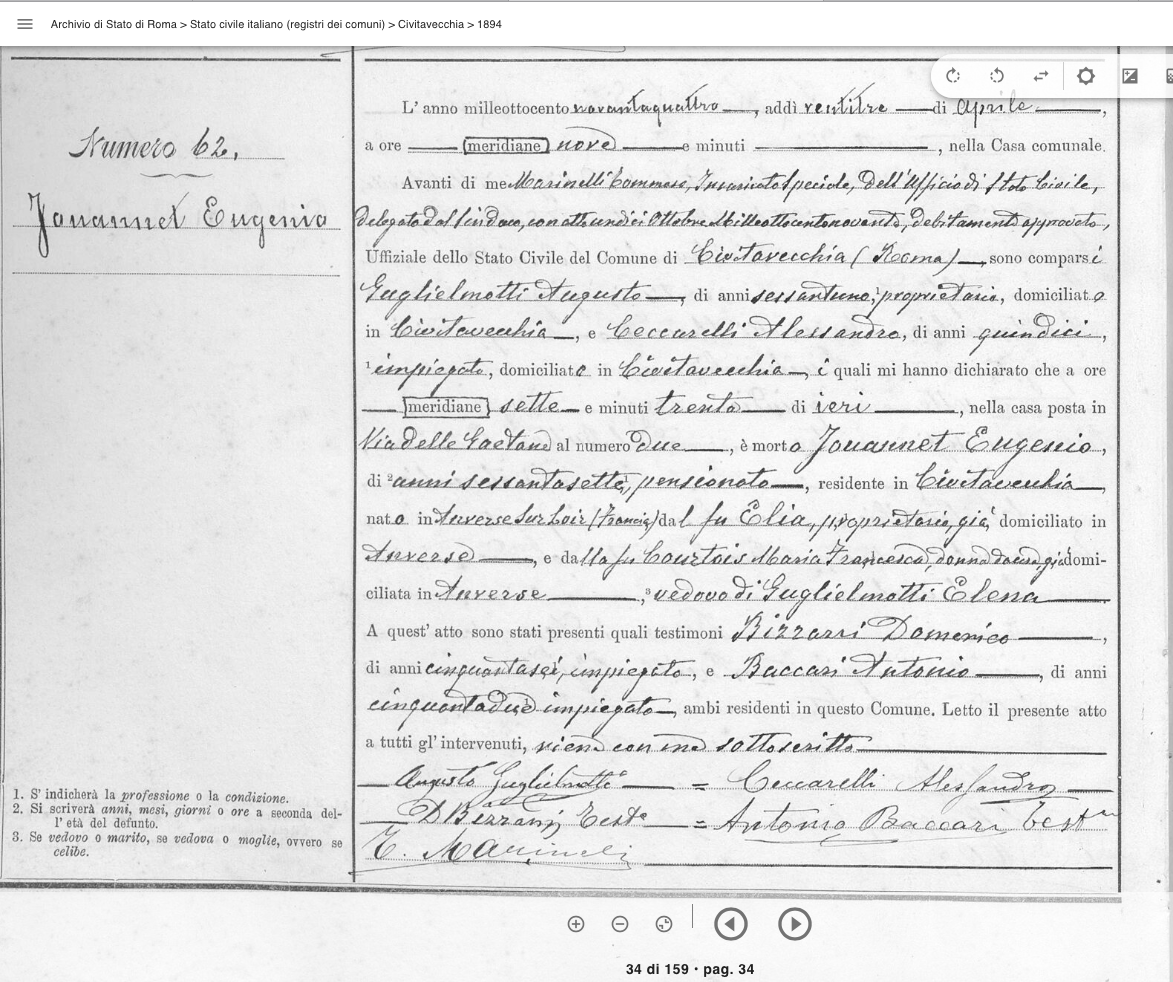 Archivio di Stato di Roma > Stato civile italiano (registri dei comuni) > Civitavecchia > 1894
Numero 62.
Jouannet Eugenio
L' anno milleottocento novantaquattro, addì ventitre di Aprile,
a ore meridiane nove e minuti, nella Casa comunale.
Avanti di me Marinelli Tommaso, Incaricato Speciale, dell'Ufficio di Stato Civile,
delegato dal Sindaco, con atto undici Ottobre Milleottocentonovanta, debitamente approvato,
Uffiziale dello Stato Civile del Comune di Civitavecchia (Roma), sono comparsi
Guglielmotti Augusto, di anni sessantuno, ¹proprietario, domiciliato
in Civitavecchia, e Ceccarelli Alessandro, di anni quindici,
¹impiegato, domiciliato in Civitavecchia, i quali mi hanno dichiarato che a ore
meridiane sette e minuti trenta di ieri, nella casa posta in
Via delle Gaetane al numero due, è morto Jouannet Eugenio,
di ²anni sessantasette, pensionato, residente in Civitavecchia,
nato in Anverse Sur Loir (Francia) dal fu Elia, proprietario, già domiciliato in
Anverse, e dalla fu Courtois Maria Francesca, donna da casa, già domi-
ciliata in Anverse, ³vedovo di Guglielmotti Elena
A quest' atto sono stati presenti quali testimoni Bizzarri Domenico,
di anni cinquantasei, impiegato, e Baccari Antonio, di anni
cinquantadue impiegato, ambi residenti in questo Comune. Letto il presente atto
a tutti gl' intervenuti, viene con me sottoscritto
Augusto Guglielmotti = Ceccarelli Alessandro
D Bizzarri Teste = Antonio Baccari Teste
T. Marinelli
1. S' indicherà la professione o la condizione.
2. Si scriverà anni, mesi, giorni o ore a seconda del-
l' età del defunto.
3. Se vedovo o marito, se vedova o moglie, ovvero se
celibe.
34 di 159 • pag. 34